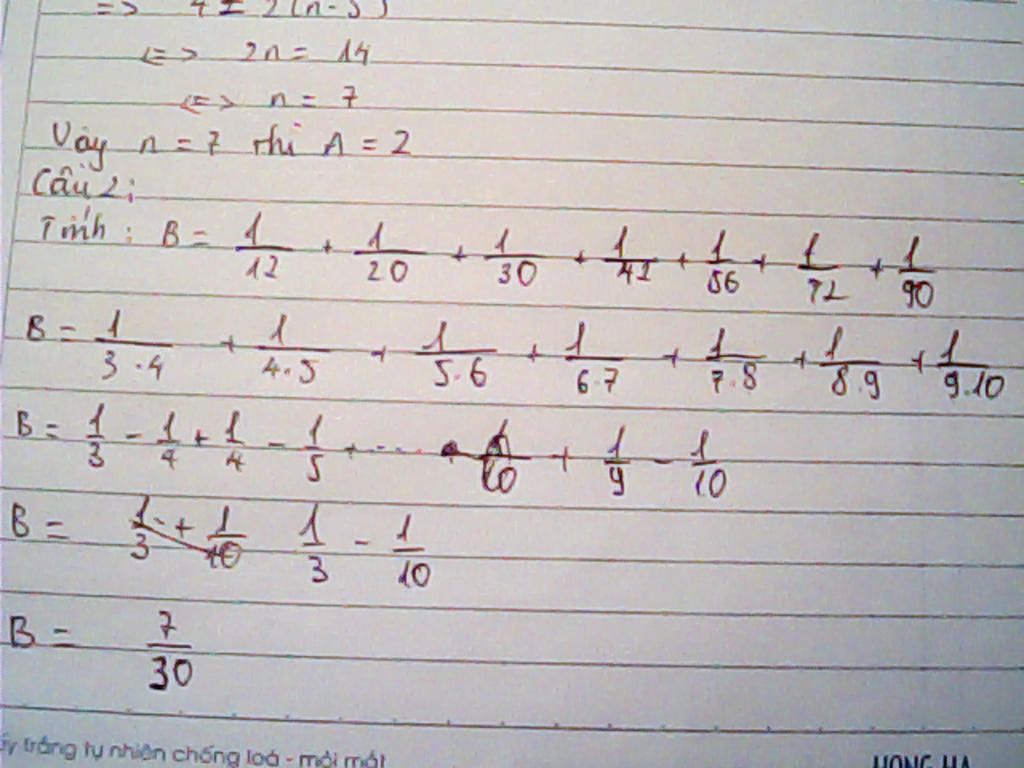 => 4 = 2(n-5)
<=> 2n = 14
<=> n = 7
Vậy n = 7 thì A = 2
Câu 2:
Tính: B = 1/12 + 1/20 + 1/30 + 1/42 + 1/56 + 1/72 + 1/90
B = 1/3.4 + 1/4.5 + 1/5.6 + 1/6.7 + 1/7.8 + 1/8.9 + 1/9.10
B = 1/3 - 1/4 + 1/4 - 1/5 + ... + 1/9 - 1/10
B = 1/3 + 1/10 1/3 - 1/10
B = 7/30
trắng tự nhiên chống loá - mỏi mắt
HONG HA